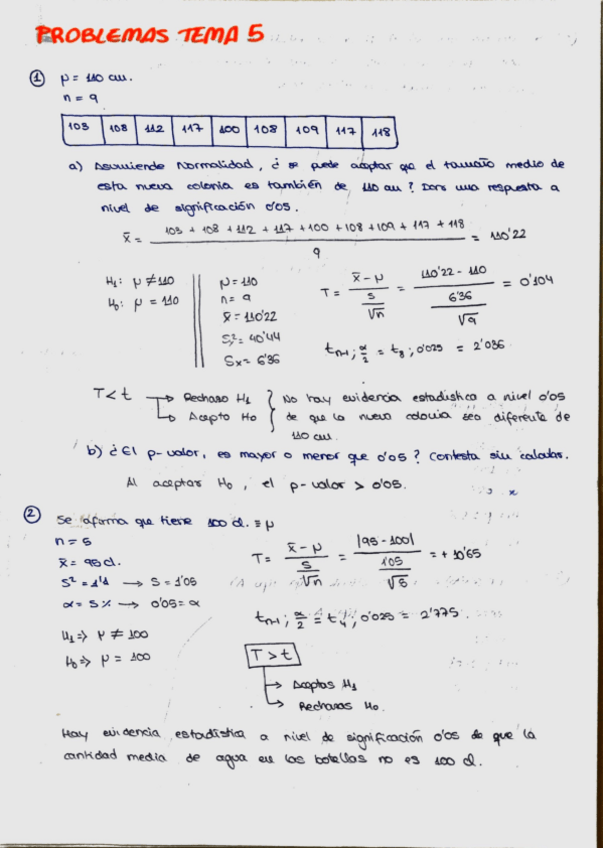 PROBLEMAS TEMA 5
① μ = 110 cm.
n = 9
103 108 112 117 100 108 109 117 118
a) Asumiendo Normalidad, ¿se puede aceptar que el tamaño medio de
esta nueva colonia es también de 110 cm? Dar una respuesta a
nivel de significación 0'05.
x̄ = (103 + 108 + 112 + 117 + 100 + 108 + 109 + 117 + 118) / 9 = 110'22
H₁: μ ≠ 110
H₀: μ = 110
μ = 110
n = 9
x̄ = 110'22
Sₓ² = 40'44
Sₓ = 6'36
T = (x̄ - μ) / (s/√n) = (110'22 - 110) / (6'36/√9) = 0'104
tₙ₋₁; α/2 = t₈; 0'025 = 2'036
T < t → Rechazo H₁
→ Acepto H₀
No hay evidencia estadística a nivel 0'05
de que la nueva colonia sea diferente de
110 cm.
b) ¿El p-valor, es mayor o menor que 0'05? Contesta sin calcular.
Al aceptar H₀, el p-valor > 0'05.
② Se afirma que tiene 100 cl. ≡ μ
n = 5
x̄ = 95 cl.
S² = 1'1 → S = 1'05
α = 5% → 0'05 = α
H₁ => μ ≠ 100
H₀ => μ = 100
T = (x̄ - μ) / (s/√n) = |95 - 100| / (1'05/√5) = + 10'65
tₙ₋₁; α/2 = t₄; 0'025 = 2'775.
T > t
→ Aceptas H₁
→ Rechazas H₀.
Hay evidencia estadística a nivel de significación 0'05 de que la
cantidad media de agua en las botellas no es 100 cl.